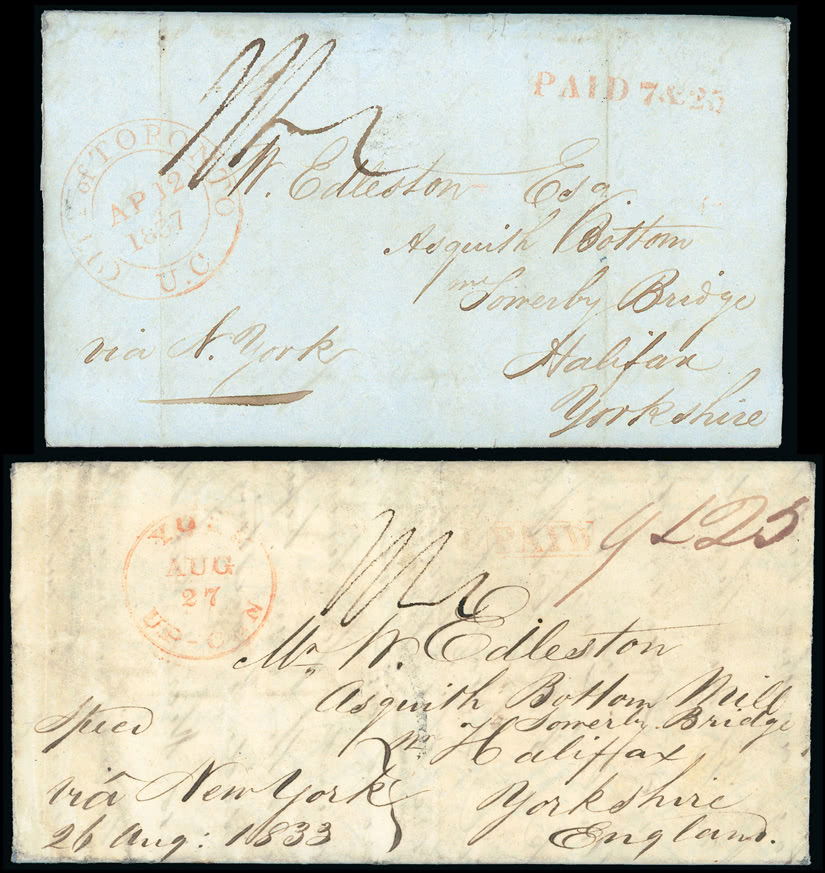 PAID 7&25
CITY of TORONTO
AP 12
1837
U.C
W. Edleston Esq.
Asquith Bottom
nr Sowerby Bridge
Halifax
Yorkshire
via N. York
YORK
AUG
27
UP-CAN
PAID 9 & 25
Mr. W. Edleston
Asquith Bottom Mill
Sowerby Bridge
nr Halifax
Yorkshire
England.
via New York
26 Aug: 1833